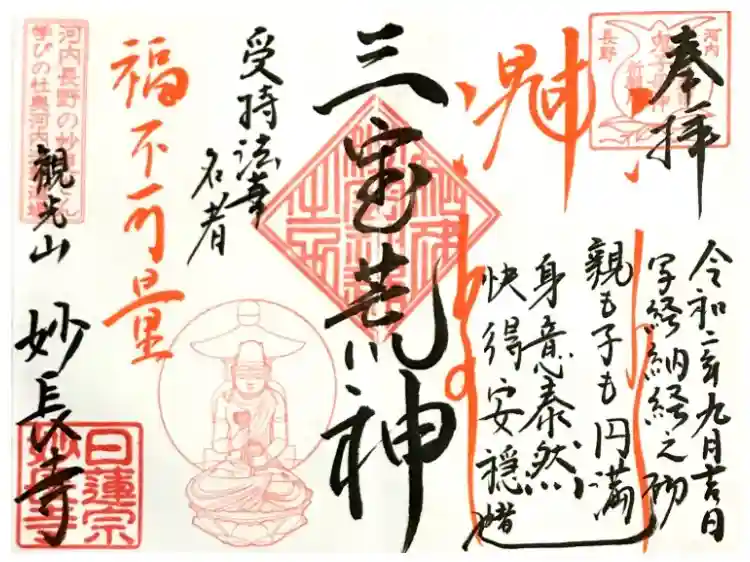 奉拝
河内
長野
令和二年九月吉日
写経納経之砌
親も子も円満
身意泰然
快得安穏
三宝荒神
受持法華
名者
福不可量
河内長野の妙見さん
観光山
妙長寺
日蓮宗
妙長寺